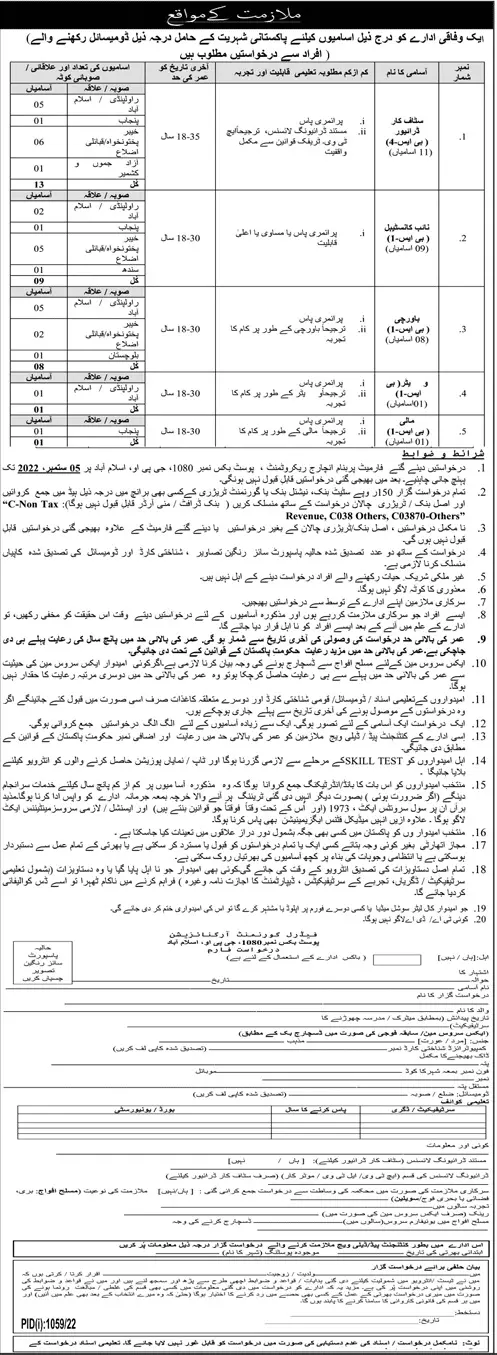 ملازمت کے مواقع
ایک وفاقی ادارے کو درج ذیل اسامیوں کیلئے پاکستانی شہریت کے حامل درجہ ذیل ڈومیسائل رکھنے والے)
( افراد سے درخواستیں مطلوب ہیں
نمبر شمار
آسامی کا نام
کم ازکم مطلوبہ تعلیمی قابلیت اور تجربہ
آخری تاریخ کو عمر کی حد
اسامیوں کی تعداد اور علاقائی / صوبائی کوٹہ
1.
سٹاف کار ڈرائیور
( بی ایس-4)
(11 اسامیاں)
i. پرائمری پاس
ii. مستند ڈرائیونگ لائسنس، ترجیحاً ایچ ٹی وی۔ ٹریفک قوانین سے مکمل واقفیت
18-35 سال
صوبہ / علاقہ آسامیاں
راولپنڈی / اسلام آباد 05
پنجاب 01
خیبر پختونخواہ/قبائلی اضلاع 06
آزاد جموں و کشمیر 01
کل 13
2.
نائب کانسٹیبل
( بی ایس-1)
(09 اسامیاں)
i. پرائمری پاس یا مساوی یا اعلیٰ قابلیت
18-30 سال
صوبہ / علاقہ آسامیاں
راولپنڈی / اسلام آباد 02
پنجاب 01
خیبر پختونخواہ/قبائلی اضلاع 05
سندھ 01
کل 09
3.
باورچی
( بی ایس-1)
(08 اسامیاں)
i. پرائمری پاس
ii. ترجیحاً باورچی کے طور پر کام کا تجربہ
18-30 سال
صوبہ / علاقہ آسامیاں
راولپنڈی / اسلام آباد 05
خیبر پختونخواہ/قبائلی اضلاع 02
بلوچستان 01
کل 08
4.
و یٹر( بی ایس-1)
(01اسامیاں)
i. پرائمری پاس
ii. ترجیحاًو یٹر کے طور پر کام کا تجربہ
18-30 سال
صوبہ / علاقہ آسامیاں
راولپنڈی / اسلام آباد 01
کل 01
5.
مالی
( بی ایس-1)
(01 اسامیاں)
i. پرائمری پاس
ii. ترجیحاً مالی کے طور پر کام کا تجربہ
18-30 سال
صوبہ / علاقہ آسامیاں
پنجاب 01
کل 01
شرائط و ضوابط
1. درخواستیں دیئے گئے فارمیٹ پربنام انچارج ریکروٹمنٹ ، پوسٹ بکس نمبر 1080، جی پی او، اسلام آباد پر 05 ستمبر، 2022 تک
پہنچ جانی چاہئیے۔ بعد میں بھیجی گئی درخواستیں قابل قبول نہیں ہونگی۔
2. تمام درخواست گزار 150 روپے سٹیٹ بنک، نیشنل بنک یا گورنمنٹ ٹریژری کے کسی بھی برانچ میں درجہ ذیل ہیڈ میں جمع کروائیں
اور اصل بنک / ٹریژری چالان درخواست کے ساتھ منسلک کریں ( بنک ڈرافٹ / منی آرڈر قابل قبول نہیں ہوگا): "C-Non Tax
Revenue, C038 Others, C03870-Others"
3. نا مکمل درخواستیں ، اصل بنک/ٹریژری چالان کے بغیر درخواستیں یا دیئے گئے فارمیٹ کے علاوہ بھیجی گئی درخواستیں قابل
قبول نہیں ہوں گی۔
4. درخواست کے ساتھ دو عدد تصدیق شدہ حالیہ پاسپورٹ سائز رنگین تصاویر ، شناختی کارڈ اور ڈومیسائل کی تصدیق شدہ کاپیاں
منسلک کرنا لازمی ہے۔
5. غیر ملکی شریک حیات رکھنے والے افراد درخواست دینے کے اہل نہیں ہیں۔
6. معذوری کا کوٹہ لاگو نہیں ہوگا۔
7. سرکاری ملازمین اپنے ادارے کے توسط سے درخواستیں بھیجیں۔
8. ایسے افراد جو سرکاری ملازمت کررہے ہوں اور مذکورہ آسامیوں کے لئے درخواستیں دیتے وقت اس حقیقت کو مخفی رکھیں، تو
ادارے کے علم میں آنے کے بعد ایسے افراد کو نا اہل قرار دیا جائے گا۔
9. عمر کی بالائی حد درخواست کی وصولی کی آخری تاریخ سے شمار ہو گی۔ عمر کی بالائی حد میں پانچ سال کی رعایت پہلے ہی دی
جاچکی ہے۔عمر کی بالائی حد میں مزید رعایت حکومت پاکستان کے قوانین کے تحت دی جائیگی۔
10. ایکس سروس مین کےلئے مسلح افواج سے ڈسچارج ہونے کی وجہ بیان کرنا لازمی ہے۔اگرکوئی امیدوار ایکس سروس مین کی حیثیت
سے عمر کی بالائی حد میں پہلے سے ہی رعایت حاصل کرچکا ہوتو وہ عمر کی بالائی حد میں دوسری مرتبہ رعایت کا حقدار نہیں
ہوگا۔
11. امیدواروں کےتعلیمی اسناد / ڈومیسائل/ قومی شناختی کارڈ اور دوسرے متعلقہ کاغذات صرف اسی صورت میں قبول کئے جائینگے اگر
وہ درخواستوں کے موصول ہونے کی آخری تاریخ سے پہلے جاری ہوچکے ہوں۔
12. ایک درخواست ایک آسامی کے لئے تصور ہوگی۔ ایک سے زیادہ آسامیوں کے لئے الگ الگ درخواستیں جمع کروانی ہوگی۔
13. اِسی ادارے کے کنٹنجنٹ پیڈ / ڈیلی ویج ملازمین کو عمر کی بالائی حد میں رعایت اور اضافی نمبر حکومت پاکستان کے قوانین کے
مطابق دی جائیگی۔
14. اہل امیدواروں کو SKILL TEST کے مرحلے سے لازمی گزرنا ہوگا اور ٹاپ / نمایاں پوزیشن حاصل کرنے والوں کو انٹرویو کیلئے
بلایا جائیگا ۔
15. منتخب امیدواروں کو اس بات کا بانڈ/انڈرٹیکنگ جمع کروانا ہوگا کہ وہ مذکورہ آسا میوں پر کم از کم پانچ سال کیلئے خدمات سرانجام
دینگے (اگر ضرورت ہوئی ) بصورت دیگر انہیں دی گئی ٹریننگ پر آنے والا خرچہ بمعہ جرمانہ ادارے کو واپس ادا کرنا ہوگا۔مزید
برآں ان پر سول سرونٹس ایکٹ ، 1973 (اور اُس کے تحت وقتاً فوقتاً جو قوانین بنتے ہیں) اور ایسنشل / لازمی سروسزمینٹیننس ایکٹ
لاگو ہوگا ۔ علاوہ ازیں انہیں میڈیکل فٹنس ایگزیمینیشن بھی پاس کرنا ہوگا۔
16. منتخب امیدوار وں کو پاکستان میں کسی بھی جگہ بشمول دور دراز علاقوں میں تعینات کیا جاسکتا ہے ۔
17. مجاز اتھارٹی بغیر کوئی وجہ بتائے کسی ایک یا تمام درخواستوں کو قبول یا مسترد کر سکتی ہے یا بھرتی کے تمام عمل سے دستبردار
ہوسکتی ہے یا انتظامی وجوہات کی بناء پر کچھ آسامیوں کی بھرتیاں روک سکتی ہے۔
18. تمام اصل دستاویزات کی تصدیق انٹرویو کے وقت کی جائے گی۔کوئی بھی امیدوار جو نا اہل پایا گیا یا وہ دستاویزات (بشمول تعلیمی
سرٹیفیکیٹ / ڈگریاں، تجربے کے سرٹیفکیٹس ، ڈیپارٹمنٹ کا اجازت نامہ وغیرہ ) فراہم کرنے میں ناکام ٹھہرا تو اسے ڈس کوالیفائی
کردیا جائے گا۔
19. جو امیدوار کال لیٹر سوشل میڈیا یا کسی دوسرے فورم پر اپلوڈ یا مشتہر کرے گا تو اس کی امیدواری ختم کر دی جائے گی۔
20. کوئی ٹی اے/ ڈی اےلاگو نہیں ہوگا۔
فیڈرل گورنمنٹ آرگنائزیشن
پوسٹ بکس نمبر1080، جی پی او، اسلام آباد
درخواست فارم
حالیہ پاسپورٹ سائز رنگین تصویر چسپاں کریں
اہل:[ہاں / نہیں] ( باکس ادارے کے استعمال کے لئے ہے)
اشتہار کا
حوالہ تاریخ
نام اسامی
درخواست گزار کا نام
والد کا نام
تاریخ پیدائش (بمطابق میٹرک / مدرسہ چھوڑنے کا
سرٹیفیکیٹ)
(ایکس سروس مین/ سابقہ فوجی کی صورت میں ڈسچارج بک کے مطابق)
جنس: [مرد / عورت] مذہب
کمپیوٹرائزڈ شناختی کارڈ نمبر (تصدیق شدہ کاپی لف کریں)
ڈاک بھیجنےکا مکمل
پتہ
فون نمبر بمعہ شہرکا کوڈ موبائل
نمبر
مستقل پتہ
ڈومیسائل: ضلع / صوبہ (تصدیق شدہ کاپی لف کریں)
تعلیمی کوائف
سرٹیفیکیٹ / ڈگری پاس کرنے کا سال بورڈ / یونیورسٹی
کوئی اور معلومات
مستند ڈرائیونگ لائسنس (سٹاف کار ڈرائیور کیلئے): [ ہاں / نہیں]
ڈرائیونگ لائسنس کی قسم (ایچ ٹی وی/ ایل ٹی وی / موٹر کار) (صرف سٹاف کار ڈرائیور کیلئے)
سرکاری ملازمت کی صورت میں محکمہ کی وساطت سے درخواست جمع کرائی گئی : [ ہاں/نہیں] ملازمت کی نوعیت (مسلح افواج: بری،
فضائی یا بحری فوج/سویلین)
تجربہ سالوں میں
رینک (صرف ایکس سروس مین کی صورت میں)
مسلح افواج میں یونیفارم سروس(سالوں میں) ڈسچارج کرنے کی وجہ
اس ادارے میں بطور کنٹنجنٹ پیڈ/ڈیلی ویج ملازمت کرنے والے درخواست گزار درجہ ذیل معلومات پُر کریں
ابتدائی بھرتی کی تاریخ موجودہ پوسٹنگ (شہر کا نام)
بیان حلفی برائے درخواست گزار
میں ولدیت / زوجیت اقرار کرتا / کرتی ہوں کہ
دستخط:
تاریخ:
PID(i):1059/22
نوٹ: نامکمل درخواست / اسناد کی عدم دستیابی کی صورت میں درخواست کو قابل غور نہیں لایا جائے گا۔ تعلیمی اسناد درخواست کے